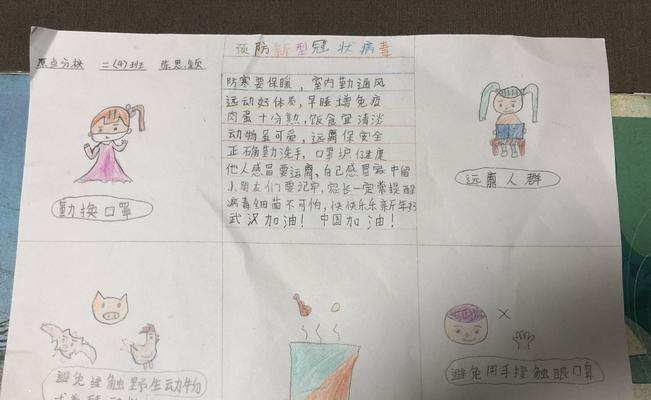 预防新型冠状病毒
原点分校 二(4)班 陈思颖
防寒要保暖，室内勤通风
远动好体质，早睡增免疫
肉蛋十分熟，饭食宜清淡
动物虽可爱，远离保安全
正确勤洗手，口罩护健康
他人感冒要远离，自己感冒家中留
小朋友们要记牢，家长一定常提醒
病毒细菌不可怕，快快乐乐新年好
武汉加油！中国加油！
勤换口罩
远离人群
避免接触野生动物
避免用手接触眼口鼻